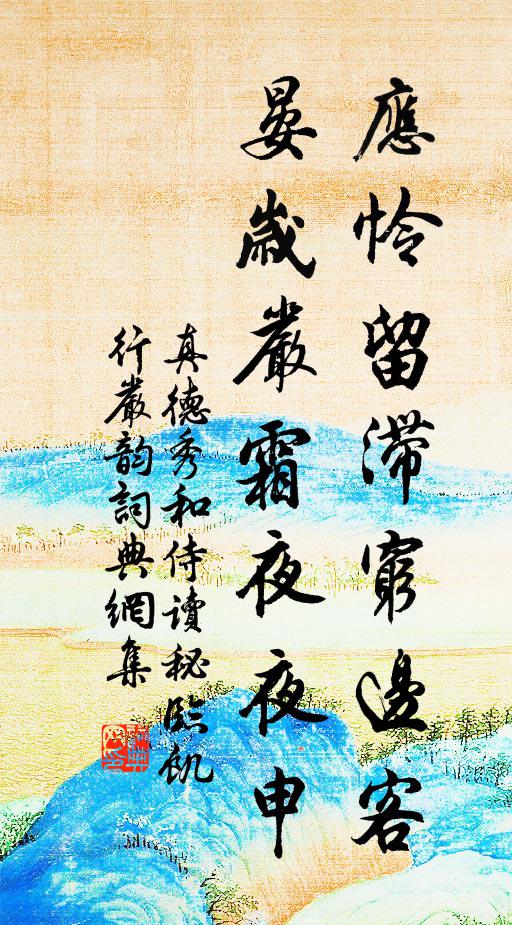 應怜留滯窮邊客
晏歳嚴霜夜夜申
真德秀和侍讀秘臨飢
行嚴韵詞典網集